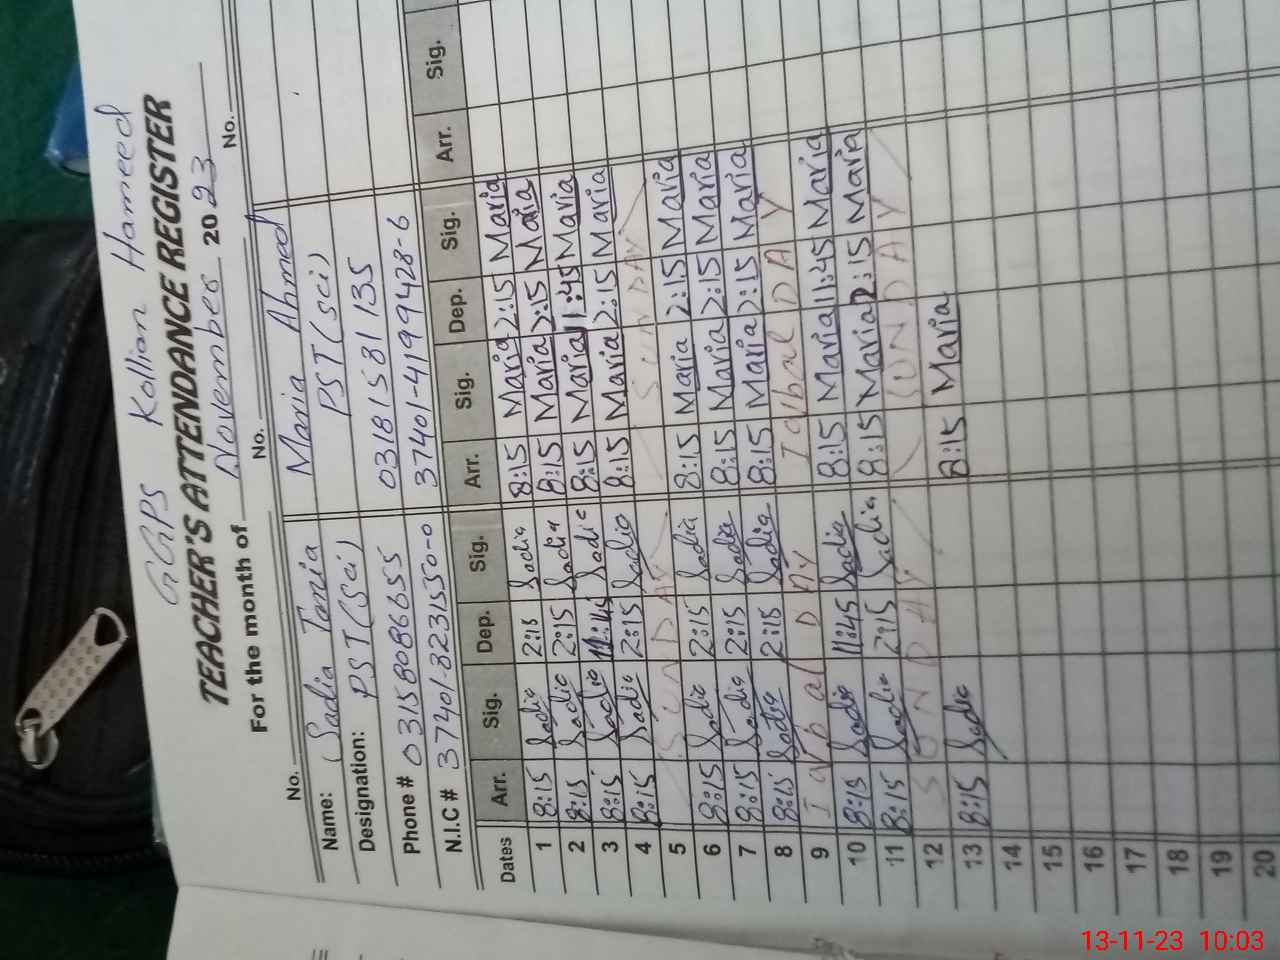 GGPS Kollian Hameed
TEACHER'S ATTENDANCE REGISTER
For the month of November 2023
No. No. No.
Name: Sadia Tanzia Maria Ahmed
Designation: PST (Sci) PST (sci)
Phone # 03158086655 03181581135
N.I.C # 37401-8231550-0 37401-4199428-6
Dates Arr. Sig. Dep. Sig. Arr. Sig. Dep. Sig. Arr. Sig.
1 8:15 Sadia 2:15 Sadia 8:15 Maria 2:15 Maria
2 8:15 Sadia 2:15 Sadia 8:15 Maria 2:15 Maria
3 8:15 Sadia 11:45 Sadia 8:15 Maria 11:45 Maria
4 8:15 Sadia 2:15 Sadia 8:15 Maria 2:15 Maria
5 SUNDAY SUNDAY
6 8:15 Sadia 2:15 Sadia 8:15 Maria 2:15 Maria
7 8:15 Sadia 2:15 Sadia 8:15 Maria 2:15 Maria
8 8:15 Sadia 2:15 Sadia 8:15 Maria 2:15 Maria
9 Iqbal DAY Iqbal DAY
10 8:15 Sadia 11:45 Sadia 8:15 Maria 11:45 Maria
11 8:15 Sadia 2:15 Sadia 8:15 Maria 2:15 Maria
12 SUNDAY SUNDAY
13 8:15 Sadia 8:15 Maria
14
15
16
17
18
19
20
13-11-23 10:03